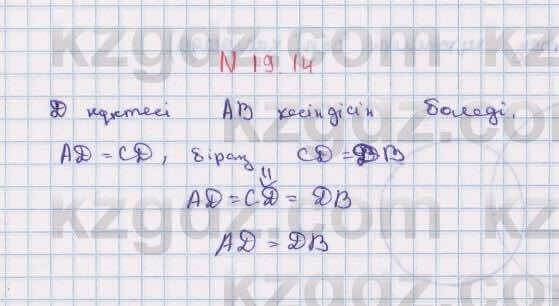 N 19.14
D нүктесі AB кесіндісін бөледі.
AD = CD, бірақ CD = DB
⇓
AD = CD = DB
AD = DB
kzgdz.com